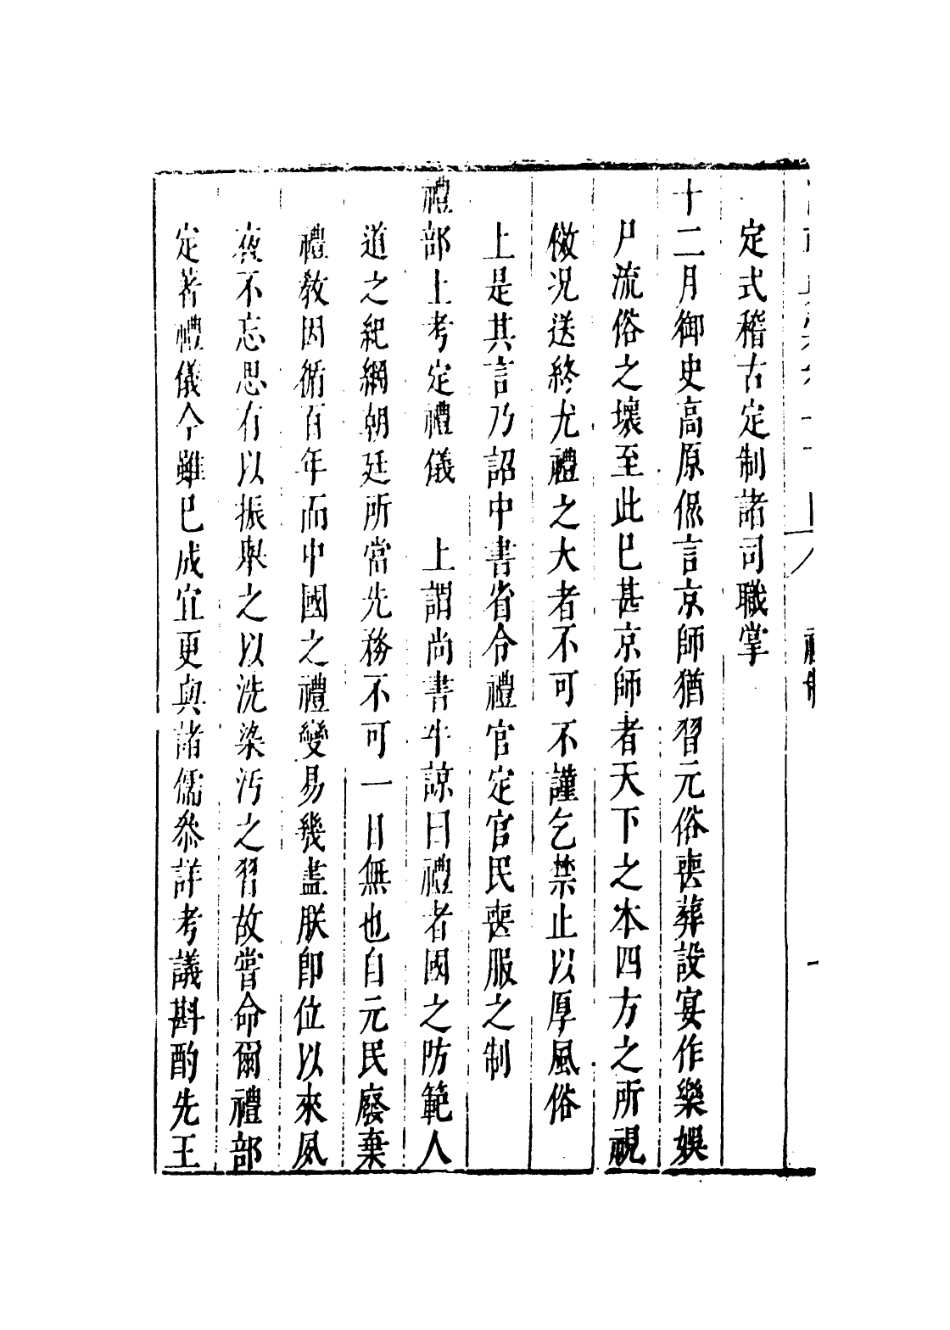 定式稽古定制諸司職掌
十二月御史高原侃言京師猶習元俗喪葬設宴作樂娛
尸流俗之壞至此巳甚京師者天下之本四方之所視
倣况送終尤禮之大者不可不謹乞禁止以厚風俗
上是其言乃詔中書省令禮官定官民喪服之制
禮部上考定禮儀 上謂尚書牛諒曰禮者國之防範人
道之紀綱朝廷所當先務不可一日無也自元民廢棄
禮敎因循百年而中國之禮變易幾盡朕卽位以來夙
夜不忘思有以振舉之以洗染汚之習故嘗命爾禮部
定著禮儀今雖巳成宜更與諸儒叅詳考議斟酌先王